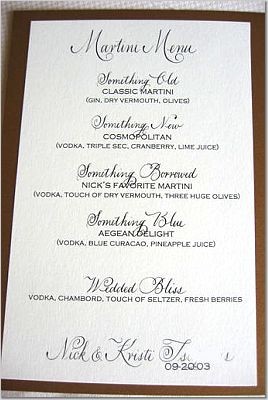 Martini Menu
Something Old
CLASSIC MARTINI
(GIN, DRY VERMOUTH, OLIVES)
Something New
COSMOPOLITAN
(VODKA, TRIPLE SEC, CRANBERRY, LIME JUICE)
Something Borrowed
NICK'S FAVORITE MARTINI
(VODKA, TOUCH OF DRY VERMOUTH, THREE HUGE OLIVES)
Something Blue
AEGEAN DELIGHT
(VODKA, BLUE CURACAO, PINEAPPLE JUICE)
Wedded Bliss
VODKA, CHAMBORD, TOUCH OF SELTZER, FRESH BERRIES
Nick & Kristi
09·20·03